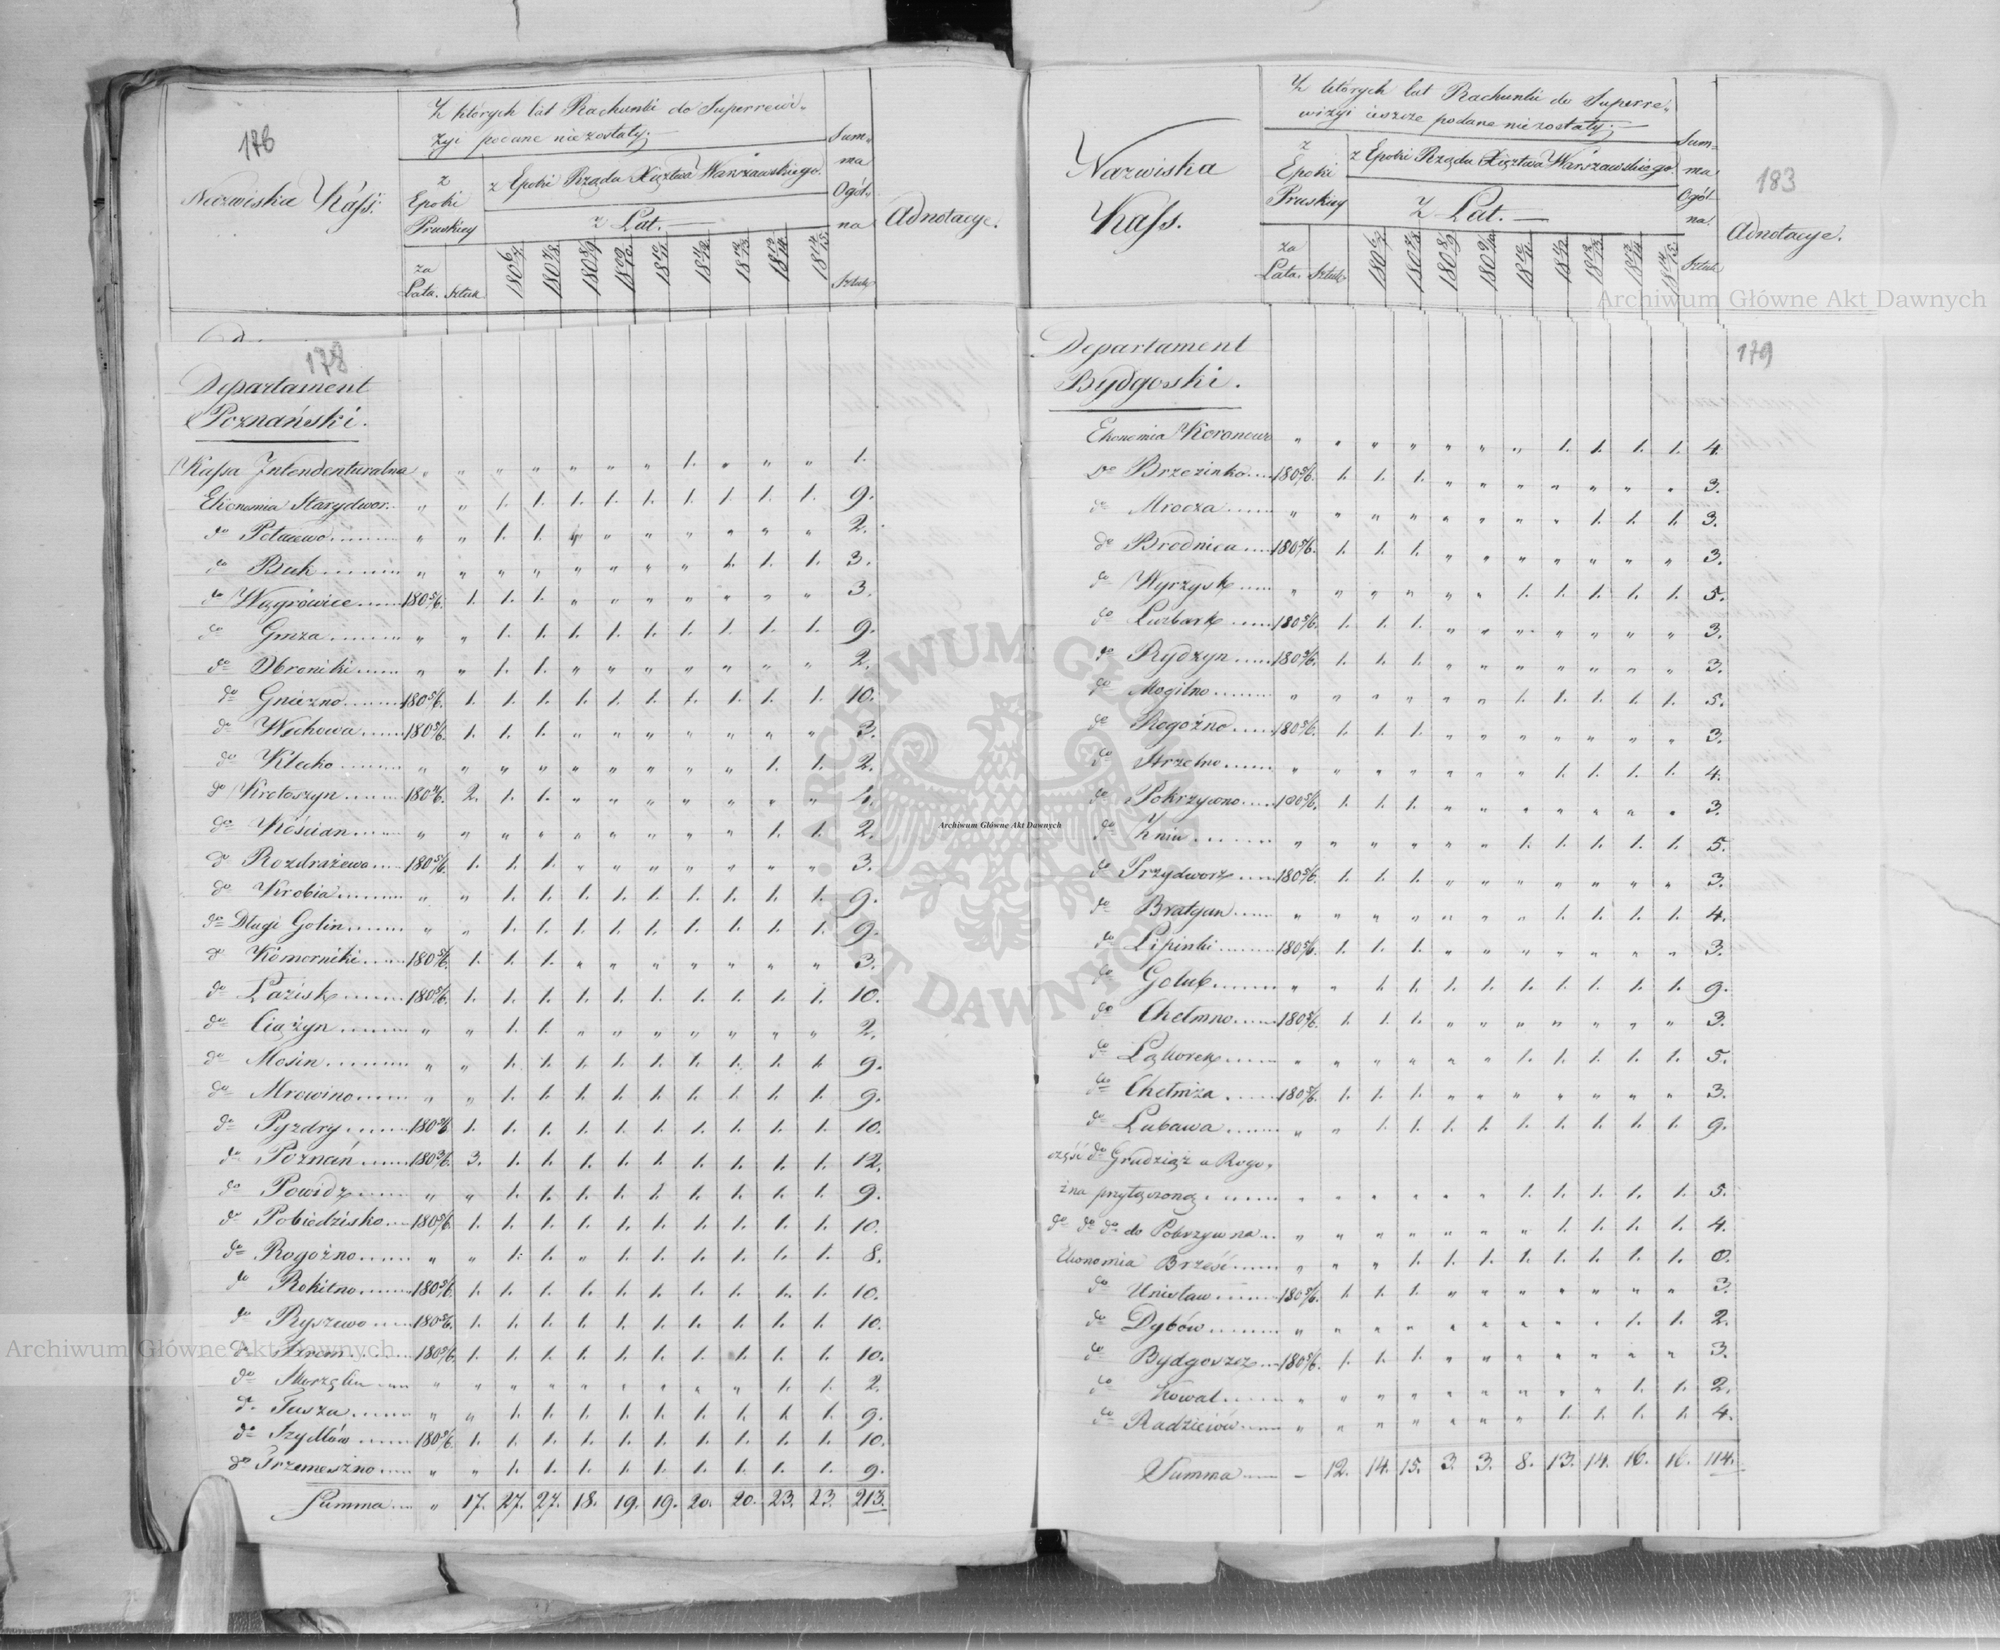 178
Nazwiska Kass.
Z których lat Rachunki do Superrewi-
zyi podane niezostały;
z Epoki Pruskiey
z Epoki Rządu Xięztwa Warszawskiego.
z Lat.
Summa Ogólna
Adnotacye.
za Lata. Sztuk 180 6/7 180 7/8 180 8/9 18 09/10 18 10/11 18 11/12 18 12/13 18 13/14 18 14/15 Sztuk
178
Departament
Poznański.
Kassa Intendenturalna „ „ „ „ „ „ „ 1. „ „ „ 1.
Ekonomia Starydwor „ „ 1. 1. 1. 1. 1. 1. 1. 1. 1. 9.
do 1. 1. „ „ „ „ „ „ „ 2.
do Buk „ „ „ „ „ „ „ „ 1. 1. 1. 3.
do Wągrowice 180 5/6. 1. 1. 1. „ „ „ „ „ „ „ 3.
do Gniza „ „ 1. 1. 1. 1. 1. 1. 1. 1. 1. 9.
do Obroniki „ „ 1. 1. „ „ „ „ „ „ „ 2.
do Gniezno 180 5/6. 1. 1. 1. 1. 1. 1. 1. 1. 1. 1. 10.
do Wschowa 180 5/6. 1. 1. 1. „ „ „ „ „ „ „ 3.
do Kłecko „ „ „ „ „ „ „ „ „ 1. 1. 2.
do Krotoszyn 2. 1. 1. „ „ „ „ „ „ „ 4.
do Kościan „ „ „ „ „ „ „ „ „ 1. 1. 2.
do Rozdrażewo 180 5/6. 1. 1. 1. „ „ „ „ „ „ „ 3.
do Krobia „ „ 1. 1. 1. 1. 1. 1. 1. 1. 1. 9.
do Długi Golin „ „ 1. 1. 1. 1. 1. 1. 1. 1. 1. 9.
do Komorniki 180 5/6. 1. 1. 1. „ „ „ „ „ „ „ 3.
do Łazisk 180 5/6. 1. 1. 1. 1. 1. 1. 1. 1. 1. 1. 10.
do Ciążyn „ „ 1. 1. „ „ „ „ „ „ „ 2.
do Mosin „ „ 1. 1. 1. 1. 1. 1. 1. 1. 1. 9.
do Mrowino „ „ 1. 1. 1. 1. 1. 1. 1. 1. 1. 9.
do Pyzdry 180 5/6 1. 1. 1. 1. 1. 1. 1. 1. 1. 1. 10.
do Poznań 180 3/6. 3. 1. 1. 1. 1. 1. 1. 1. 1. 1. 12.
do Powidz „ „ 1. 1. 1. 1. 1. 1. 1. 1. 1. 9.
do Pobiedzisko 180 5/6 1. 1. 1. 1. 1. 1. 1. 1. 1. 1. 10.
do Rogoźno „ „ 1. 1. „ 1. 1. 1. 1. 1. 1. 8.
do Rokitno 180 5/6. 1. 1. 1. 1. 1. 1. 1. 1. 1. 1. 10.
do Ryszewo 180 5/6. 1. 1. 1. 1. 1. 1. 1. 1. 1. 1. 10.
do Szrem 180 5/6. 1. 1. 1. 1. 1. 1. 1. 1. 1. 1. 10.
do „ „ „ „ „ „ „ „ „ 1. 1. 2.
do Tusza „ „ 1. 1. 1. 1. 1. 1. 1. 1. 1. 9.
do Szydłów 180 5/6. 1. 1. 1. 1. 1. 1. 1. 1. 1. 1. 10.
do Trzemeszno „ „ 1. 1. 1. 1. 1. 1. 1. 1. 1. 9.
Summa „ 17. 27. 27. 18. 19. 19. 20. 20. 23. 23. 213.
183
Nazwiska
Kass.
Z których lat Rachunki do Superre-
wizyi ieszcze podane niezostały;
z Epoki Pruskiey
z Epoki Rządu Xięztwa Warszawskiego.
Z Lat.
Summa Ogólna.
Adnotacye.
za Lata. Sztuk 180 6/7 180 7/8 180 8/9 180 9/10 18 10/11 18 11/12 18 12/13 18 13/14 18 14/15 Sztuk
179
Departament
Bydgoski.
Ekonomia Koronowo „ „ „ „ „ „ „ 1. 1. 1. 1. 4.
do Brzezinko 180 5/6. 1. 1. 1. „ „ „ „ „ „ „ 3.
do Mrocza „ „ „ „ „ „ „ „ 1. 1. 1. 3.
do Brodnica 180 5/6. 1. 1. 1. „ „ „ „ „ „ „ 3.
do Wyrzysk „ „ „ „ „ „ 1. 1. 1. 1. 1. 5.
do Luzbark 180 5/6. 1. 1. 1. „ „ „ „ „ „ „ 3.
do Rydzyn 180 5/6. 1. 1. 1. „ „ „ „ „ „ „ 3.
do Mogilno „ „ „ „ „ „ 1. 1. 1. 1. 1. 5.
do Rogoźno 180 5/6. 1. 1. 1. „ „ „ „ „ „ „ 3.
do Strzelno „ „ „ „ „ „ „ 1. 1. 1. 1. 4.
do Pokrzywno 180 5/6. 1. 1. 1. „ „ „ „ „ „ „ 3.
do Znin „ „ „ „ „ „ 1. 1. 1. 1. 1. 5.
do Przydworz 180 5/6. 1. 1. 1. „ „ „ „ „ „ „ 3.
do Bratyan „ „ „ „ „ „ „ 1. 1. 1. 1. 4.
do Lipinki 180 5/6. 1. 1. 1. „ „ „ „ „ „ „ 3.
do Golub „ „ 1. 1. 1. 1. 1. 1. 1. 1. 1. 9.
do Chełmno 180 5/6. 1. 1. 1. „ „ „ „ „ „ „ 3.
do Łąkorek „ „ „ „ „ „ 1. 1. 1. 1. 1. 5.
do Chełmża 180 5/6. 1. 1. 1. „ „ „ „ „ „ „ 3.
do Lubawa „ „ 1. 1. 1. 1. 1. 1. 1. 1. 1. 9.
część do Grudziąż a Rogo-
źna przyłączona „ „ „ „ „ „ 1. 1. 1. 1. 1. 5.
do do do do Pokrzywna „ „ „ „ „ „ „ 1. 1. 1. 1. 4.
Ekonomia Brześć „ „ „ 1. 1. 1. 1. 1. 1. 1. 1.
do Unisław 180 5/6. 1. 1. 1. „ „ „ „ „ „ „ 3.
do Dybów „ „ „ „ „ „ „ „ „ 1. 1. 2.
do Bydgoszcz 180 5/6. 1. 1. 1. „ „ „ „ „ „ „ 3.
do Kowal „ „ „ „ „ „ „ „ „ 1. 1. 2.
do Radzieiów „ „ „ „ „ „ „ 1. 1. 1. 1. 4.
Summa – 12. 14. 15. 3. 3. 8. 13. 14. 16. 16. 114.
Archiwum Główne Akt Dawnych
Archiwum Główne Akt Dawnych
Archiwum Główne Akt Dawnych
ARCHIWUM GŁÓWNE AKT DAWNYCH